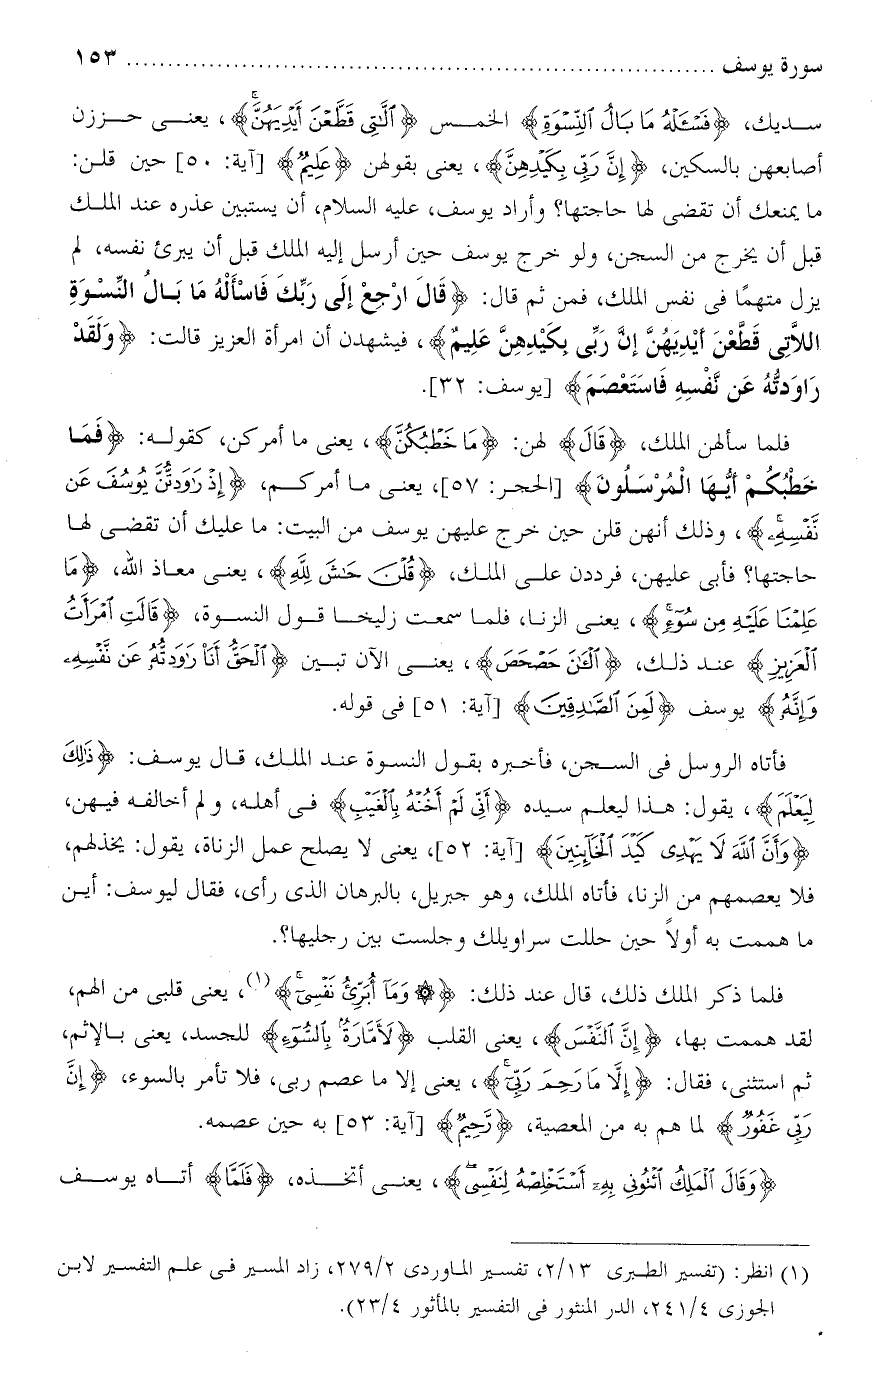 سورة يوسف ........................................................................ ١٥٣
سـديك، ﴿فَسْـَٔلْهُ مَا بَالُ ٱلنِّسْوَةِ﴾ الخمـس ﴿ٱلَّـٰتِى قَطَّعْنَ أَيْدِيَهُنَّ﴾، يعنـى حـززن
أصابعهن بالسكين، ﴿إِنَّ رَبِّى بِكَيْدِهِنَّ﴾، يعنى بقولهن ﴿عَلِيمٌ﴾ [آية: ٥٠] حين قلن:
ما يمنعك أن تقضى لها حاجتها؟ وأراد يوسف، عليه السلام، أن يستبين عذره عند الملـك
قبل أن يخرج من السجن، ولو خرج يوسف حين أرسل إليه الملك قبل أن يبرئ نفسه، لم
يزل متهمًا فى نفس الملك، فمن ثم قال: ﴿قَالَ ارْجِعْ إِلَى رَبِّكَ فَاسْأَلْهُ مَا بَـالُ النِّسْـوَةِ
اللاَّتِى قَطَّعْنَ أَيْدِيَهُنَّ إِنَّ رَبِّى بِكَيْدِهِنَّ عَلِيمٌ﴾، فيشهدن أن امرأة العزيز قالت: ﴿وَلَقَدْ
رَاوَدتُّهُ عَن نَّفْسِهِ فَاسَتَعْصَمَ﴾ [يوسف: ٣٢].
فلما سألهن الملك، ﴿قَالَ﴾ لهن: ﴿مَا خَطْبُكُنَّ﴾، يعنى ما أمركن، كقولـه: ﴿فَمَـا
خَطْبُكُـمْ أَيُّـهَا الْمُرْسَـلُونَ﴾ [الحجـر: ٥٧]، يعنـى مـا أمركـم، ﴿إِذْ رَٰوَدتُّنَّ يُوسُفَ عَن
نَّفْسِهِۦ﴾، وذلك أنهن قلن حين خرج عليهن يوسف من البيت: ما عليك أن تقضـى لهـا
حاجتها؟ فأبى عليهن، فرددن علـى الملـك، ﴿قُلْنَ حَـٰشَ لِلَّهِ﴾، يعنـى معـاذ الله، ﴿مَا
عَلِمْنَا عَلَيْهِ مِن سُوٓءٍ﴾، يعنـى الزنـا، فلمـا سمعت زليخـا قـول النسـوة، ﴿قَالَتِ ٱمْرَأَتُ
ٱلْعَزِيزِ﴾ عنـد ذلـك، ﴿ٱلْـَٰٔنَ حَصْحَصَ﴾، يعنـى الآن تبـين ﴿ٱلْحَقُّ أَنَا۠ رَٰوَدتُّهُۥ عَن نَّفْسِهِۦ
وَإِنَّهُۥ﴾ يوسف ﴿لَمِنَ ٱلصَّـٰدِقِينَ﴾ [آية: ٥١] فى قوله.
فأتاه الروسل فى السـجن، فأخـبره بقـول النسـوة عنـد الملـك، قـال يوسـف: ﴿ذَٰلِكَ
لِيَعْلَمَ﴾، يقول: هـذا ليعلـم سـيده ﴿أَنِّى لَمْ أَخُنْهُ بِٱلْغَيْبِ﴾ فـى أهلـه، و لم أخالفـه فيـهن،
﴿وَأَنَّ ٱللَّهَ لَا يَهْدِى كَيْدَ ٱلْخَآئِنِينَ﴾ [آية: ٥٢]، يعنى لا يصلح عمل الزناة، يقول: يخذلهم،
فلا يعصمهم من الزنا، فأتاه الملك، وهو جبريل، بالبرهان الذى رأى، فقال ليوسف: أيـن
ما هممت به أولاً حين حللت سراويلك وجلست بين رجليها؟.
فلما ذكر الملك ذلك، قال عند ذلك: ﴿۞ وَمَآ أُبَرِّئُ نَفْسِىٓ﴾(١)، يعنى قلبى من الهم،
لقد هممت بها، ﴿إِنَّ ٱلنَّفْسَ﴾، يعنى القلب ﴿لَأَمَّارَةٌۢ بِٱلسُّوٓءِ﴾ للجسد، يعنى بـالإثم،
ثم استثنى، فقال: ﴿إِلَّا مَا رَحِمَ رَبِّىٓ﴾، يعنى إلا ما عصم ربى، فلا تأمر بالسوء، ﴿إِنَّ
رَبِّى غَفُورٌ﴾ لما هم به من المعصية، ﴿رَّحِيمٌ﴾ [آية: ٥٣] به حين عصمه.
﴿وَقَالَ ٱلْمَلِكُ ٱئْتُونِى بِهِۦٓ أَسْتَخْلِصْهُ لِنَفْسِى﴾، يعنـى أتخـذه، ﴿فَلَمَّا﴾ أتـاه يوسـف
(١) انظر: (تفسير الطبرى ٢/١٣، تفسير المـاوردى ٢٧٩/٢، زاد المسير فـى علـم التفسـير لابـن
الجوزى ٢٤١/٤، الدر المنثور فى التفسير بالمأثور ٢٣/٤).